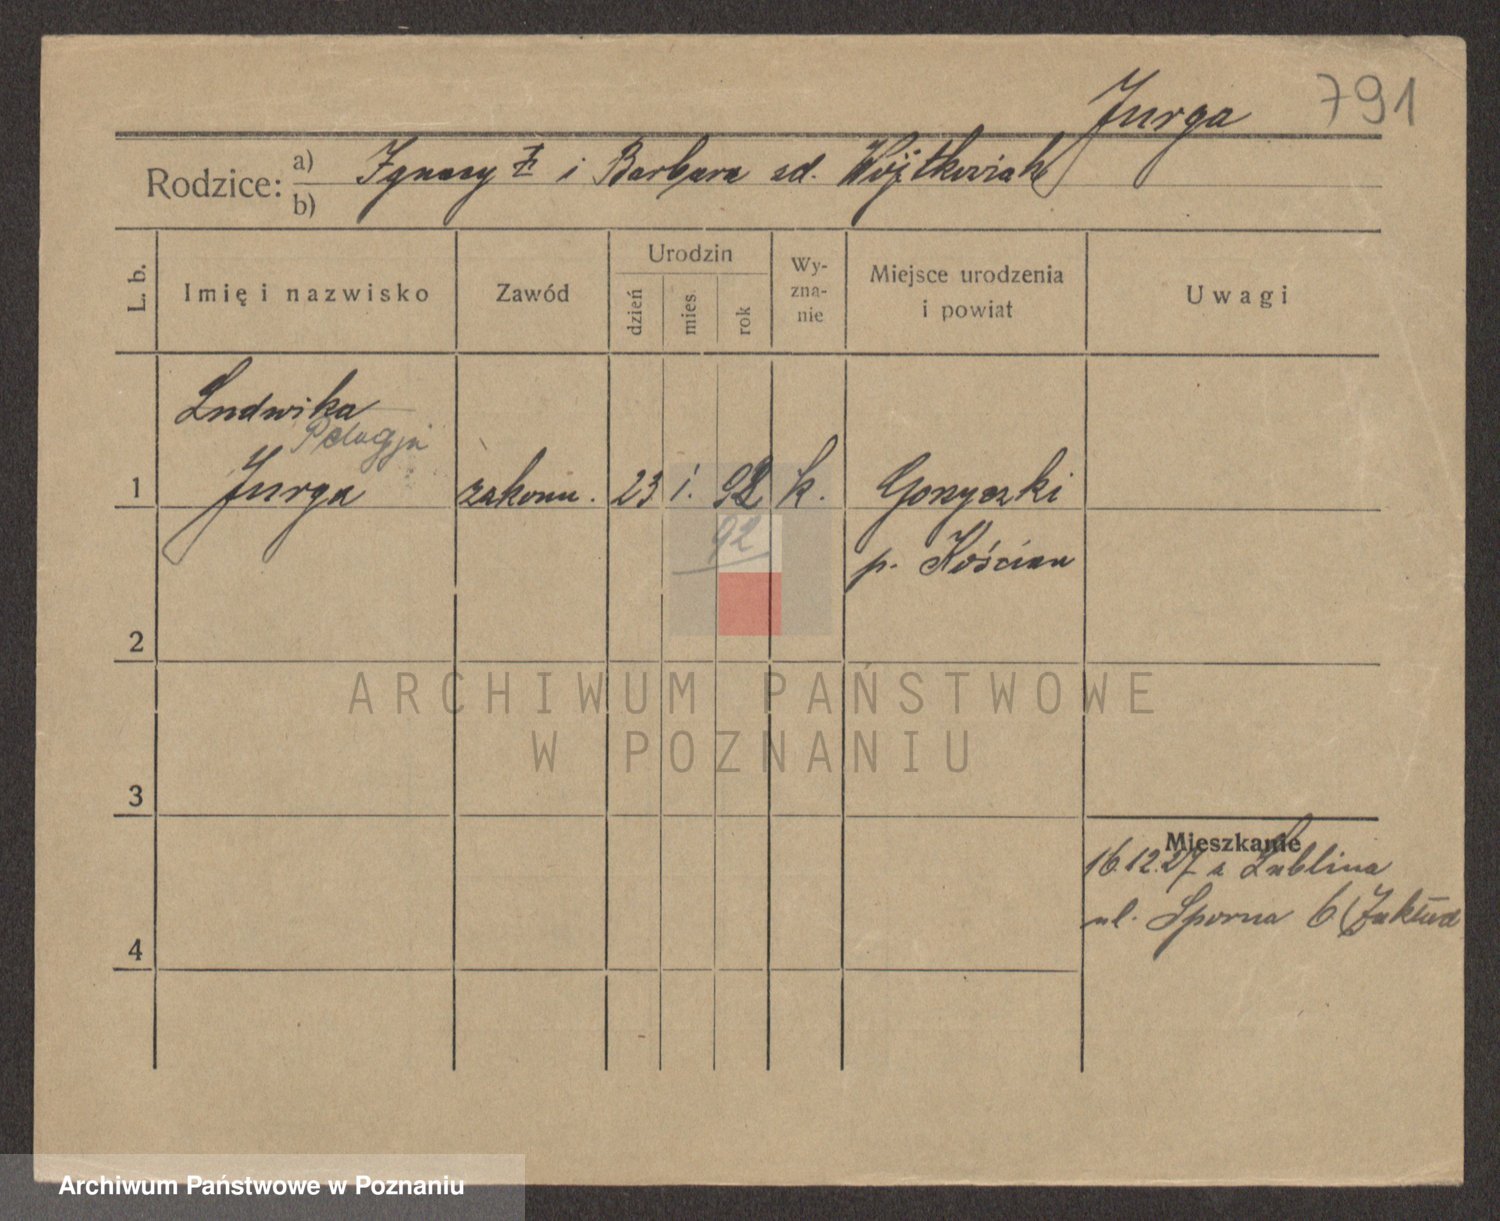 791
Jurga
Rodzice: a) Ignacy i Barbara zd. Wójtkowiak
b)
L. b.
Imię i nazwisko
Zawód
Urodzin
dzień
mies
rok
Wy-
zna-
nie
Miejsce urodzenia
i powiat
Uwagi
Ludwika
Pelagja
1 Jurga zakonn. 23 1. 92 k. Gorzyczki
92
p. Kościan
2
ARCHIWUM PAŃSTWOWE
W POZNANIU
3
Mieszkanie
16.12.27 z Lublina
ul. Sporna 6 (Zakład
4
Archiwum Państwowe w Poznaniu